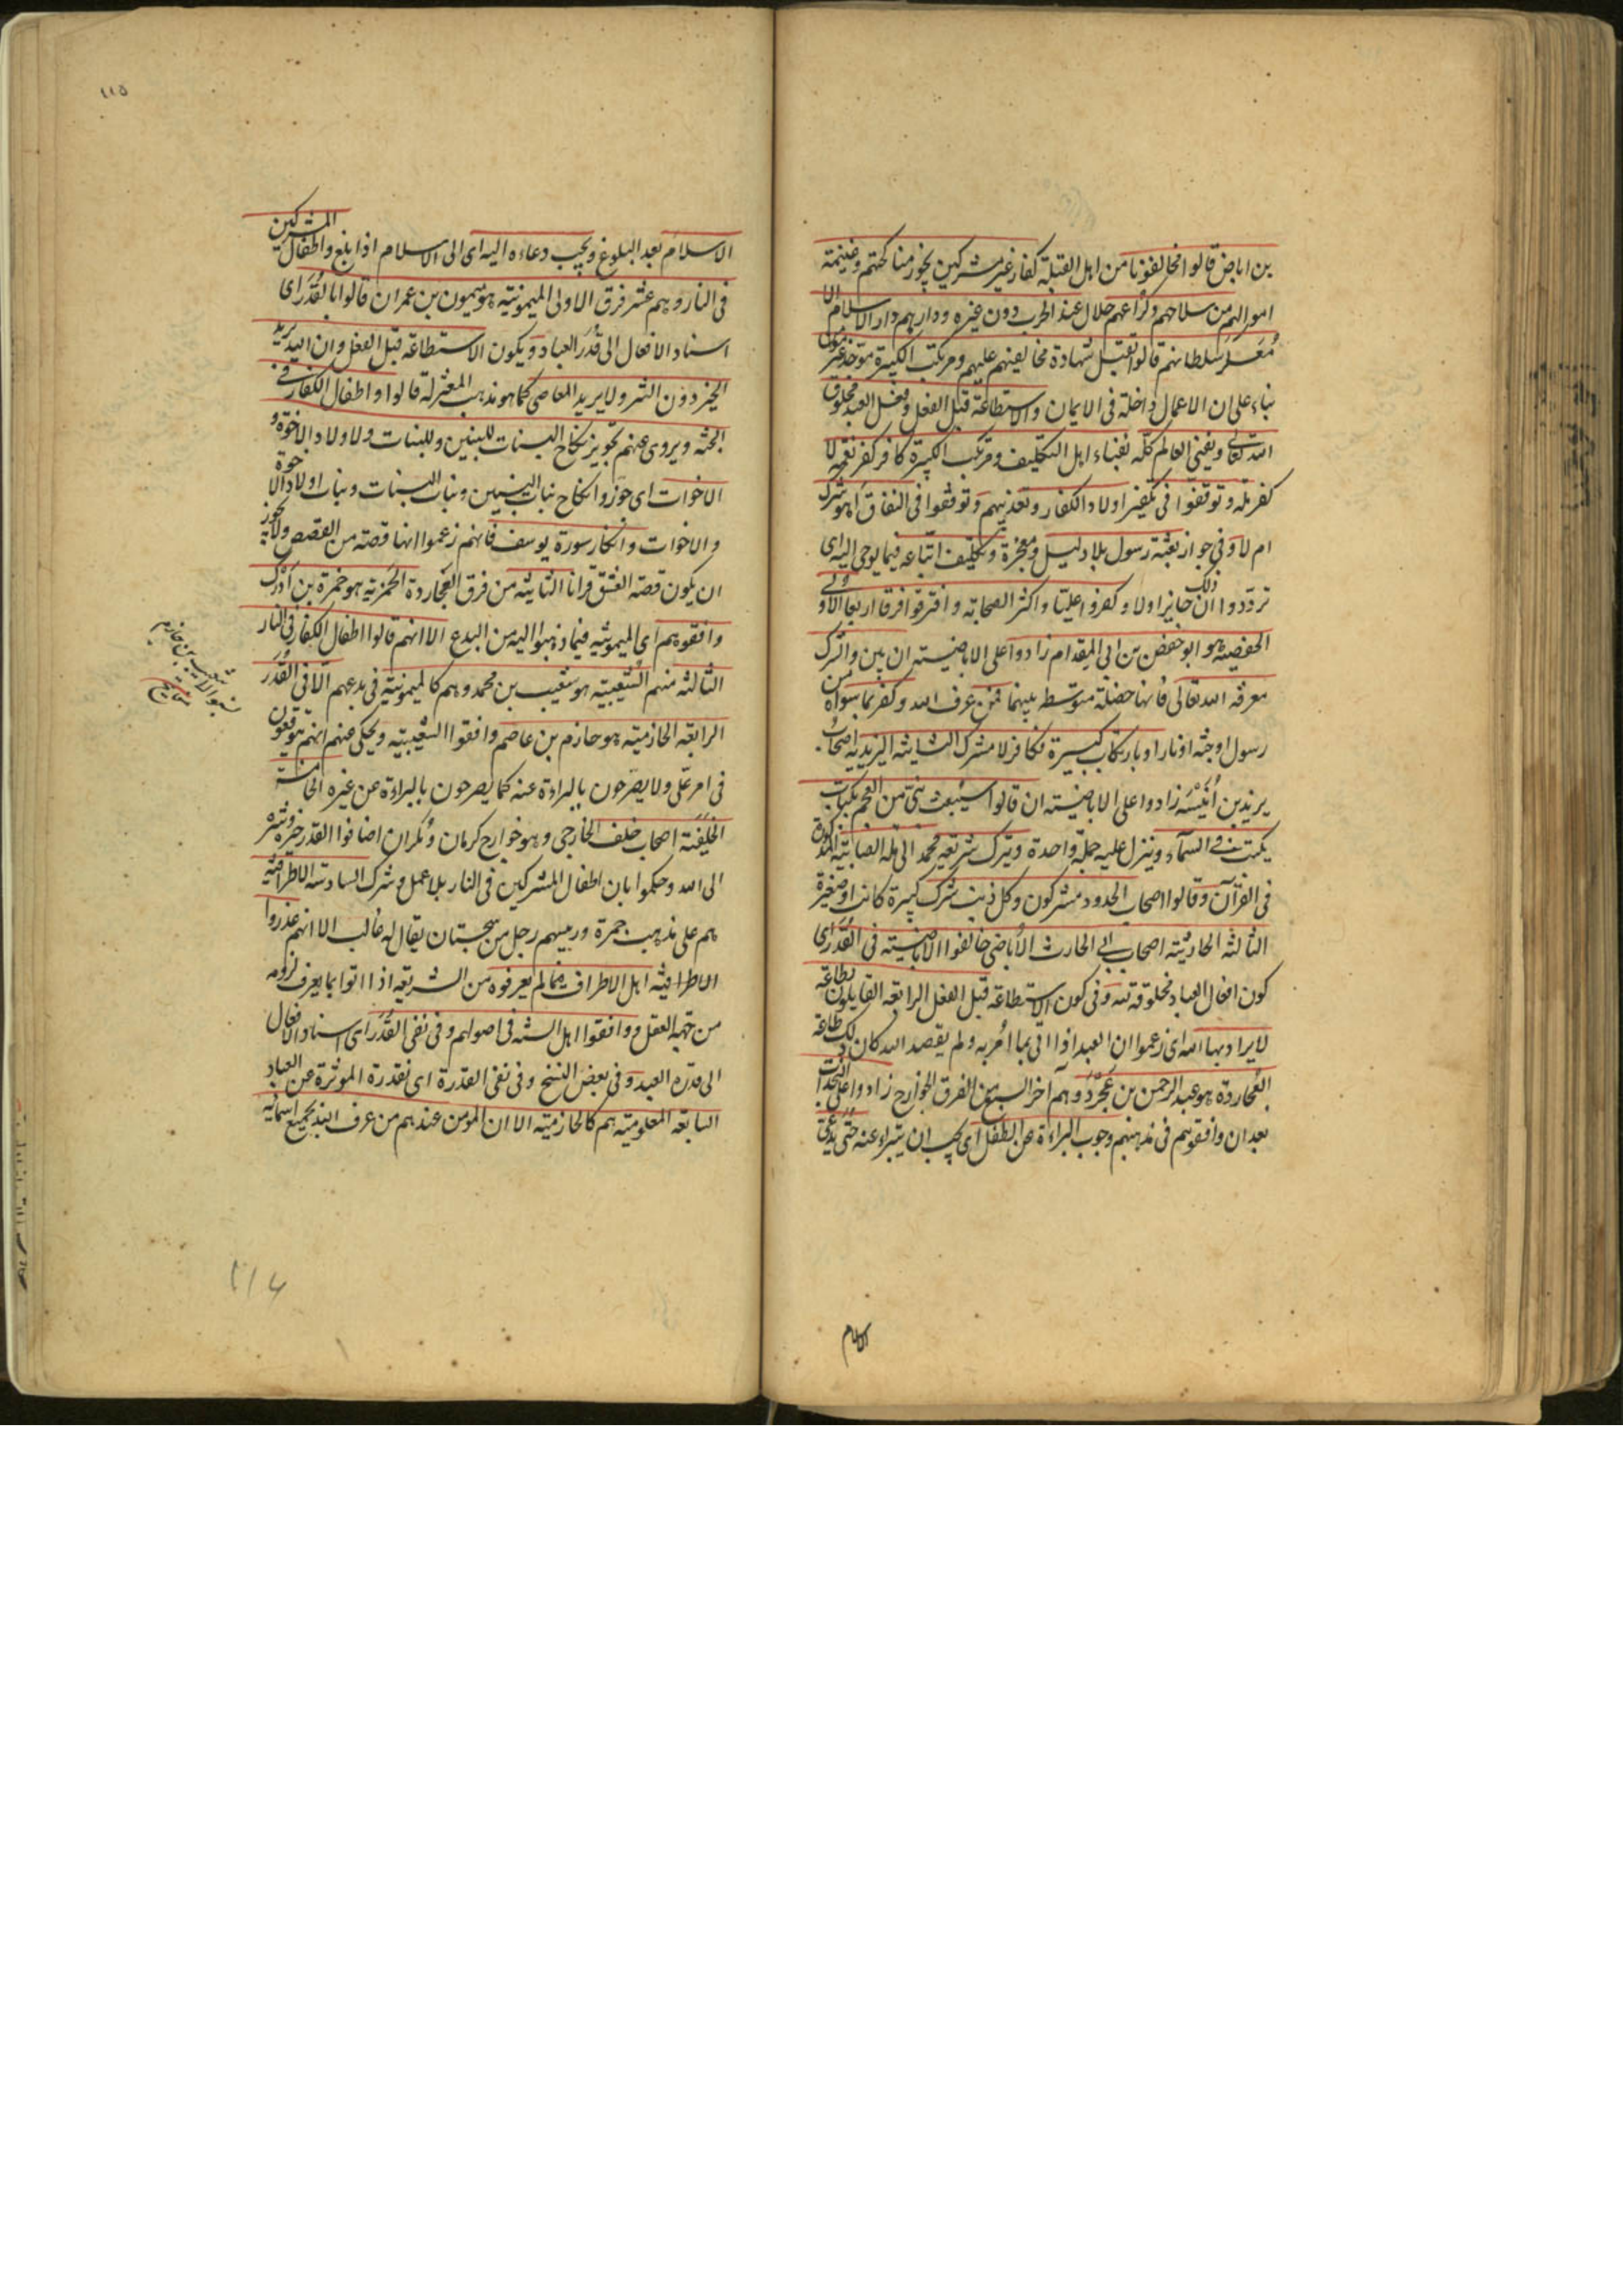 بن اباض قالوا مخالفونا من اهل القبلة كفار غير مشركين يجوز مناكحتهم وغنيمة
اموالهم من سلاحهم وكراعهم حلال عند الحرب دون غيره ودارهم دار الاسلام الا
معسكر سلطانهم قالوا تقبل شهادة مخالفيهم عليهم ومرتكب الكبيرة موحد غير مؤمن
بناء على ان الاعمال داخلة فى الايمان والاستطاعة قبل الفعل وفعل العبد مخلوق
الله تعالى ويفنى العالم كله بفناء اهل التكليف ومرتكب الكبيرة كافر كفر نعمة لا
كفر ملة وتوقفوا فى تكفير اولاد الكفار وتعذيبهم وتوقفوا فى النفاق اهو شرك
ام لا وفى جواز بعثة رسول بلا دليل ومعجزة وتكليف اتباعه فيما يوحى اليه اى
ترددوا ان ذلك جايز اولا وكفروا عليا واكثر الصحابة وافترقوا فرقا اربعا الاولى
الحفصية هو ابو حفص بن ابى المقدام زادوا على الاباضية ان بين والشرك
معرفة الله تعالى فانها خصلة متوسطه بينهما فمن عرف الله وكفر بما سواه من
رسول اوجنة اونار او بارتكاب كبيرة فكافر لا مشرك الثانية اليزيدية اصحاب
يزيد بن انيسة زادوا على الاباضية ان قالوا سيبعث نبى من العجم بكتاب
يكتب فى السماء وينزل عليه جملة واحدة ويترك شريعة محمد الى ملة الصابئة المذكورة
فى القرآن وقالوا اصحاب الحدود مشركون وكل ذنب شرك كبيرة كانت اوصغيرة
الثالثة الحارثية اصحاب ابى الحارث الاباضى خالفوا الاباضية فى القدر اى
كون افعال العباد مخلوقة لله وفى كون الاستطاعة قبل الفعل الرابعة القايلون بطاعة
لا يراد بها الله اى زعموا ان العبد اذا اتى بما امر به ولم يقصد الله كان ذلك طاعة
العجاردة هو عبد الرحمن بن عجرد وهم آخر السبع من الفرق الخوارج زادوا على النجدات
بعد ان وافقوهم فى مذهبهم وجوب البراءة عن الطفل اى يجب ان يتبراء عنه حتى يدعى
الاسلام
١١٥
الاسلام بعد البلوغ ويجب دعاءه اليه اى الى الاسلام اذا بلغ واطفال المشركين
فى النار وهم عشر فرق الاولى الميمونية هو ميمون بن عمران قالوا بالقدر اى
اسناد الافعال الى قدر العباد ويكون الاستطاعة قبل الفعل وان الله يريد
الخير دون الشر ولا يريد المعاصى كما هو مذهب المعتزلة قالوا واطفال الكفار فى
الجنة ويروى عنهم تجويز نكاح البنات للبنين وللبنات ولاولاد الاخوة و
الاخوات اى جوزوا نكاح بنات البنين وبنات البنات وبنات اولاد الاخوة
والاخوات وانكار سورة يوسف فانهم زعموا انها قصة من القصص ولا يجوز
ان يكون قصة العشق قرانا الثانية من فرق العجاردة الحمزية هو حمزة بن ادرك
وافقوهم اى الميمونية فيما ذهبوا اليه من البدع الا انهم قالوا اطفال الكفار فى النار
الثالثة منهم الشعيبية هو شعيب بن محمد وهم كالميمونية فى بدعهم الا فى القدر
الرابعة الحازمية هو حازم بن عاصم وافقوا الشعيبية ويحكى عنهم انهم يتوقفون
فى امر على ولا يصرحون بالبراءة عنه كما يصرحون بالبراءة عن غيره الخامسة
الخلفية اصحاب خلف الخارجى وهو خوارج كرمان ومكران اضافوا القدر خيره وشره
الى الله وحكموا بان اطفال المشركين فى النار بلا عمل وشرك السادسة الاطرافية
هم على مذهب حمزة ورئيسهم رجل من سجستان يقال له غالب الا انهم عذروا
الاطرافية اهل الاطراف فيما لم يعرفوه من الشريعة اذا اتوا بما يعرف لزومه
من جهة العقل ووافقوا اهل السنة فى اصولهم وفى نفى القدر اى اسناد الافعال
الى قدرة العبد وفى بعض النسخ وفى نفى القدرة اى بقدرة الموثرة عن العباد
السابعة المعلومية هم كالحازمية الا ان المؤمن عندهم من عرف الله بجميع اسمائه